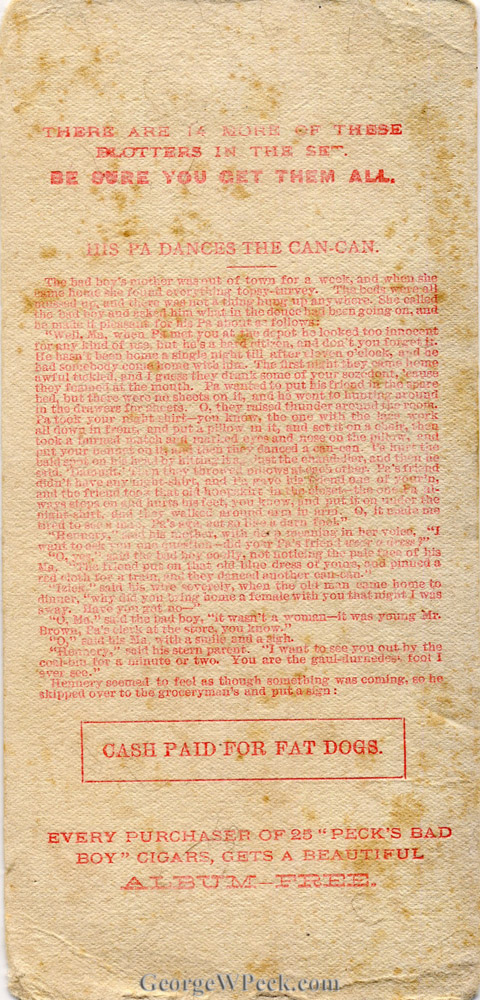 THERE ARE 14 MORE OF THESE
BLOTTERS IN THE SET.
BE SURE YOU GET THEM ALL.
HIS PA DANCES THE CAN-CAN.
The bad boy's mother was out of town for a week, and when she
came home she found everything topsy-turvey. The beds were all
mussed up, and there was not a thing hung up anywhere. She called
the bad boy and asked him what in the deuce had been going on, and
he made it pleasant for his Pa about as follows:
"Well, Ma, when Pa met you at the depot he looked too innocent
for any kind of use, but he's a hard citizen, and don't you forget it.
He hasn't been home a single night till after eleven o'clock, and he
had somebody come home with him. The first night they came home
awful tickled, and I guess they drank some of your
they foamed at the mouth. Pa wanted to put his friend in the spare
bed, but there were no sheets on it, and he went to hunting around
in the drawers for sheets. O, they raised thunder around the room.
Pa took your night shirt—you know, the one with the lace work
all down in front, and put a pillow in it, and set it on a chair, then
took a burned match and marked eyes and nose on the pillow, and
put your bonnet on it, and then they danced a can-can. Pa hurt the
bald spot on his head by hitting it against the chandelier, and then he
said, Dammit. Then they throwed pillows at each other. Pa's friend
didn't have any night-shirt, and Pa gave his friend one of your'n,
and the friend took that old hoopskirt in the closet—the one Pa al-
ways steps on and hurts his feet, you know, and put it on under the
night-shirt, and they walked around arm in arm. O, it made me
tired to see a man Pa's age act so like a darn fool."
"Hennery," said his mother, with deep meaning in her voice, "I
want to ask you one question—did your Pa's friend wear a dress?"
"O, yes," said the bad boy coolly, not noticing the pale face of his
Ma. "The friend put on that old blue dress of yours, and pinned a
red cloth for a train, and they danced another can-can."
said his wife severely, when the old man came home to
dinner, "why did you bring home a female with you that night I was
away. Have you got no—"
"O, Ma," said the bad boy, "it wasn't a woman—it was young Mr.
Brown, Pa's clerk at the store, you know."
"O," said his Ma, with a smile and a sigh.
"Hennery," said his stern parent. "I want to see you out by the
coal-bin for a minute or two. You are the gaul-durnedest fool I
ever see."
Hennery seemed to feel as though something was coming, so he
skipped over to the groceryman's and put a sign:
CASH PAID FOR FAT DOGS.
EVERY PURCHASER OF 25 "PECK'S BAD
BOY" CIGARS, GETS A BEAUTIFUL
ALBUM—FREE.
GeorgeWPeck.com